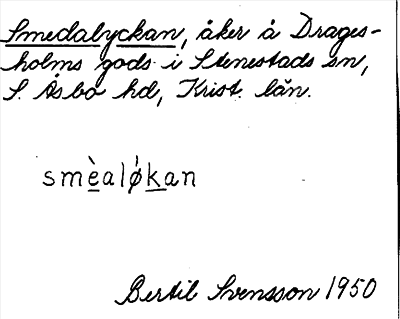 Smedalyckan, åker å Drages-
holms gods i Stenestads sn,
S. Åsbo hd, Krist. län.
smè̱alǿḵan
Bertil Svensson 1950